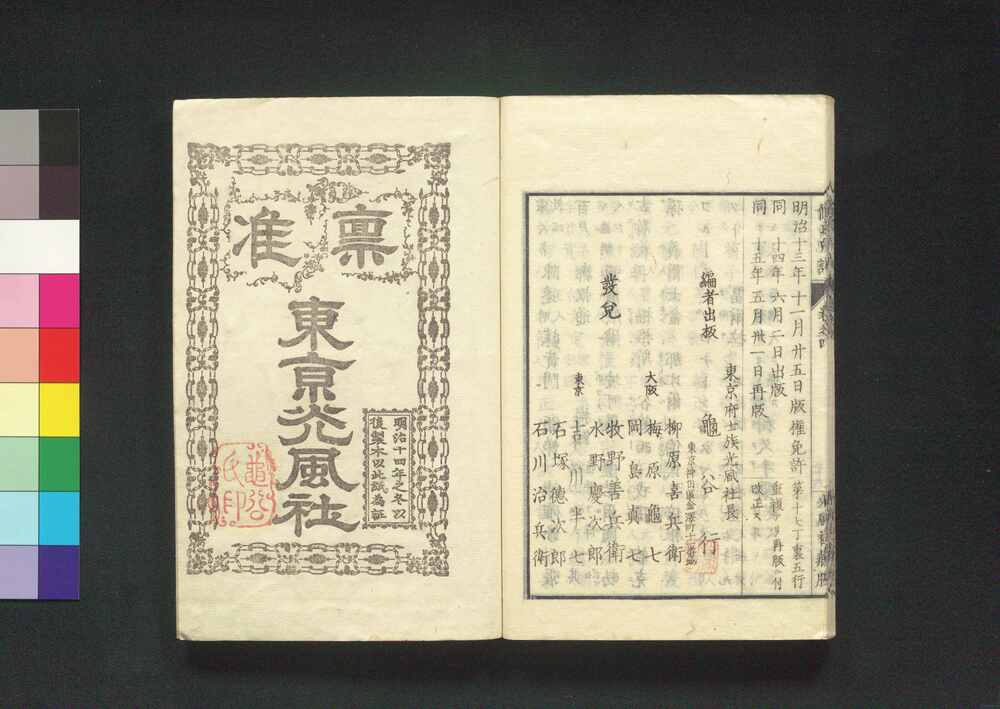 明治十三年十一月廿五日版權免許
同 十四年 六月二日出版
同 十五年 五月卅一日再版
第十七丁裏五行
編者出板
東京府士族光風社長
龜谷 行
發兌
大阪
柳原喜兵衛
梅原龜七
岡島真七
牧野善兵衛
水野慶次郎
東京
吉川半七
石塚徳次郎
石川治兵衛
稟准
東京光風社
明治十四年之冬以
後製本以此誌為証